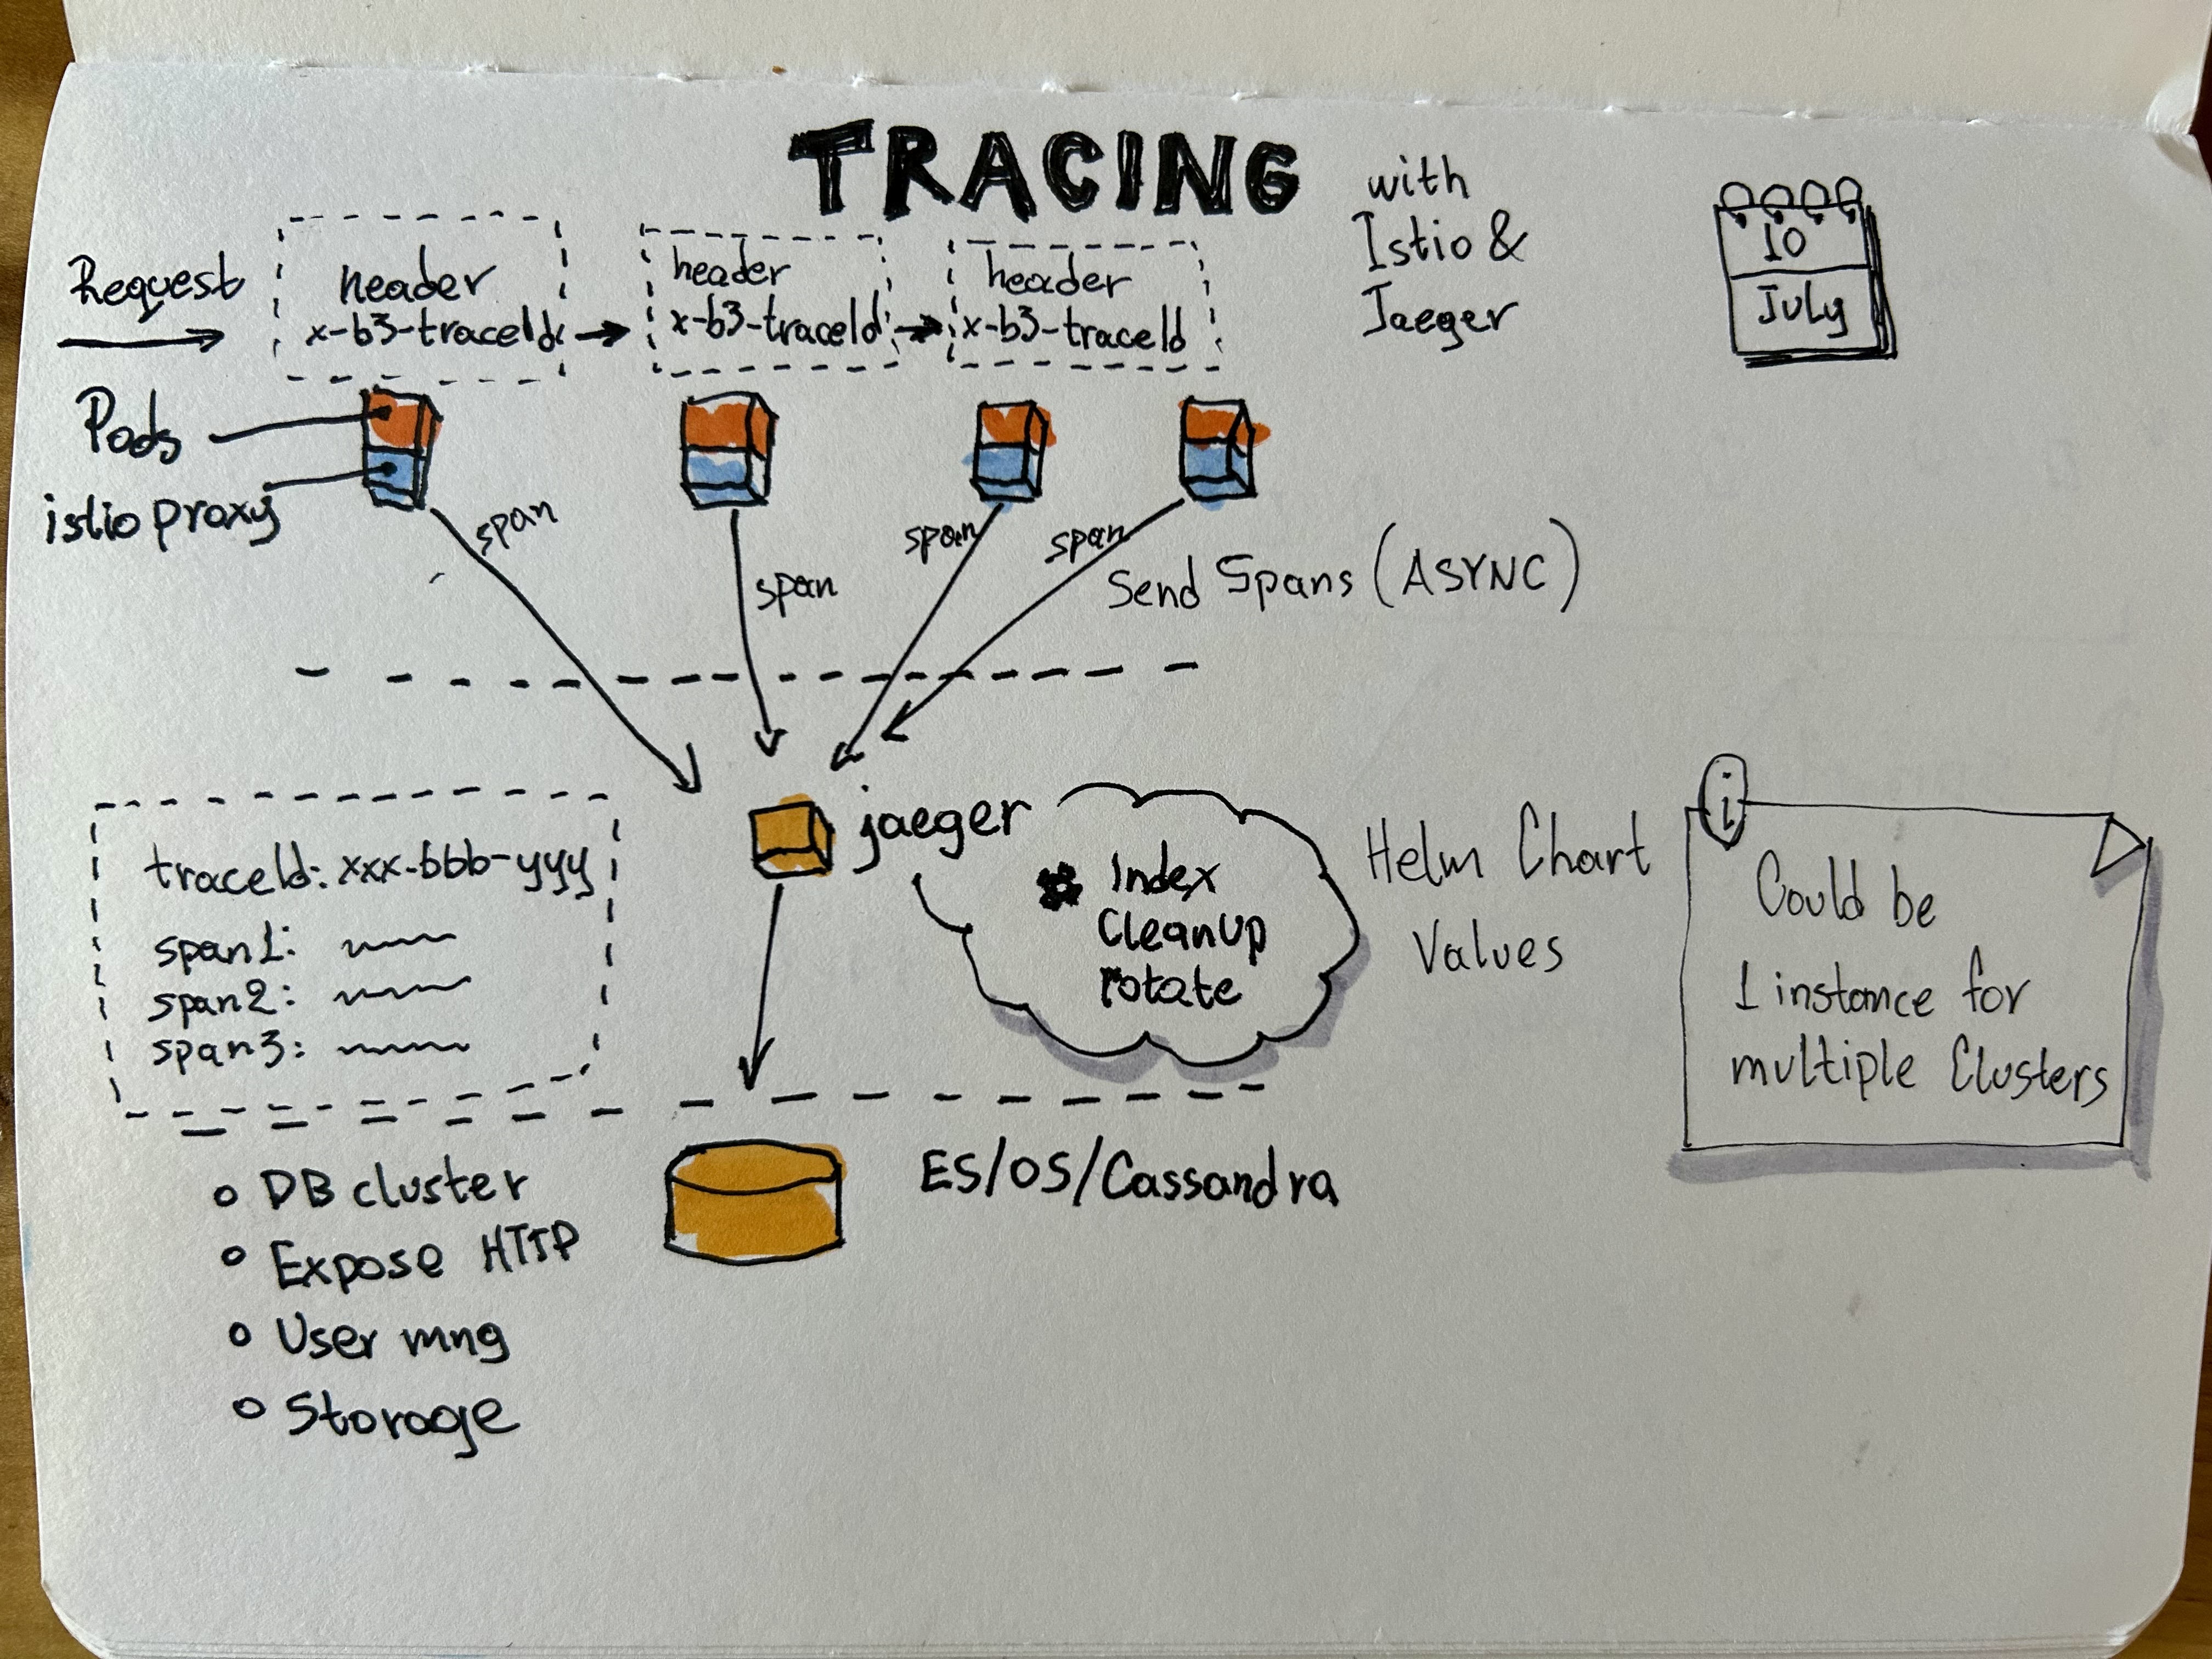 TRACING
with
Istio &
Jaeger
10
July
Request
header
x-b3-traceId
header
x-b3-traceId
header
x-b3-traceId
Pods
istio proxy
span
span
span
span
Send Spans (ASYNC)
jaeger
traceId: xxx-bbb-yyy
span1:
span2:
span3:
Index
CleanUp
rotate
Helm Chart
Values
i
Could be
1 instance for
multiple Clusters
DB cluster
Expose HTTP
User mng
Storage
ES/OS/Cassandra